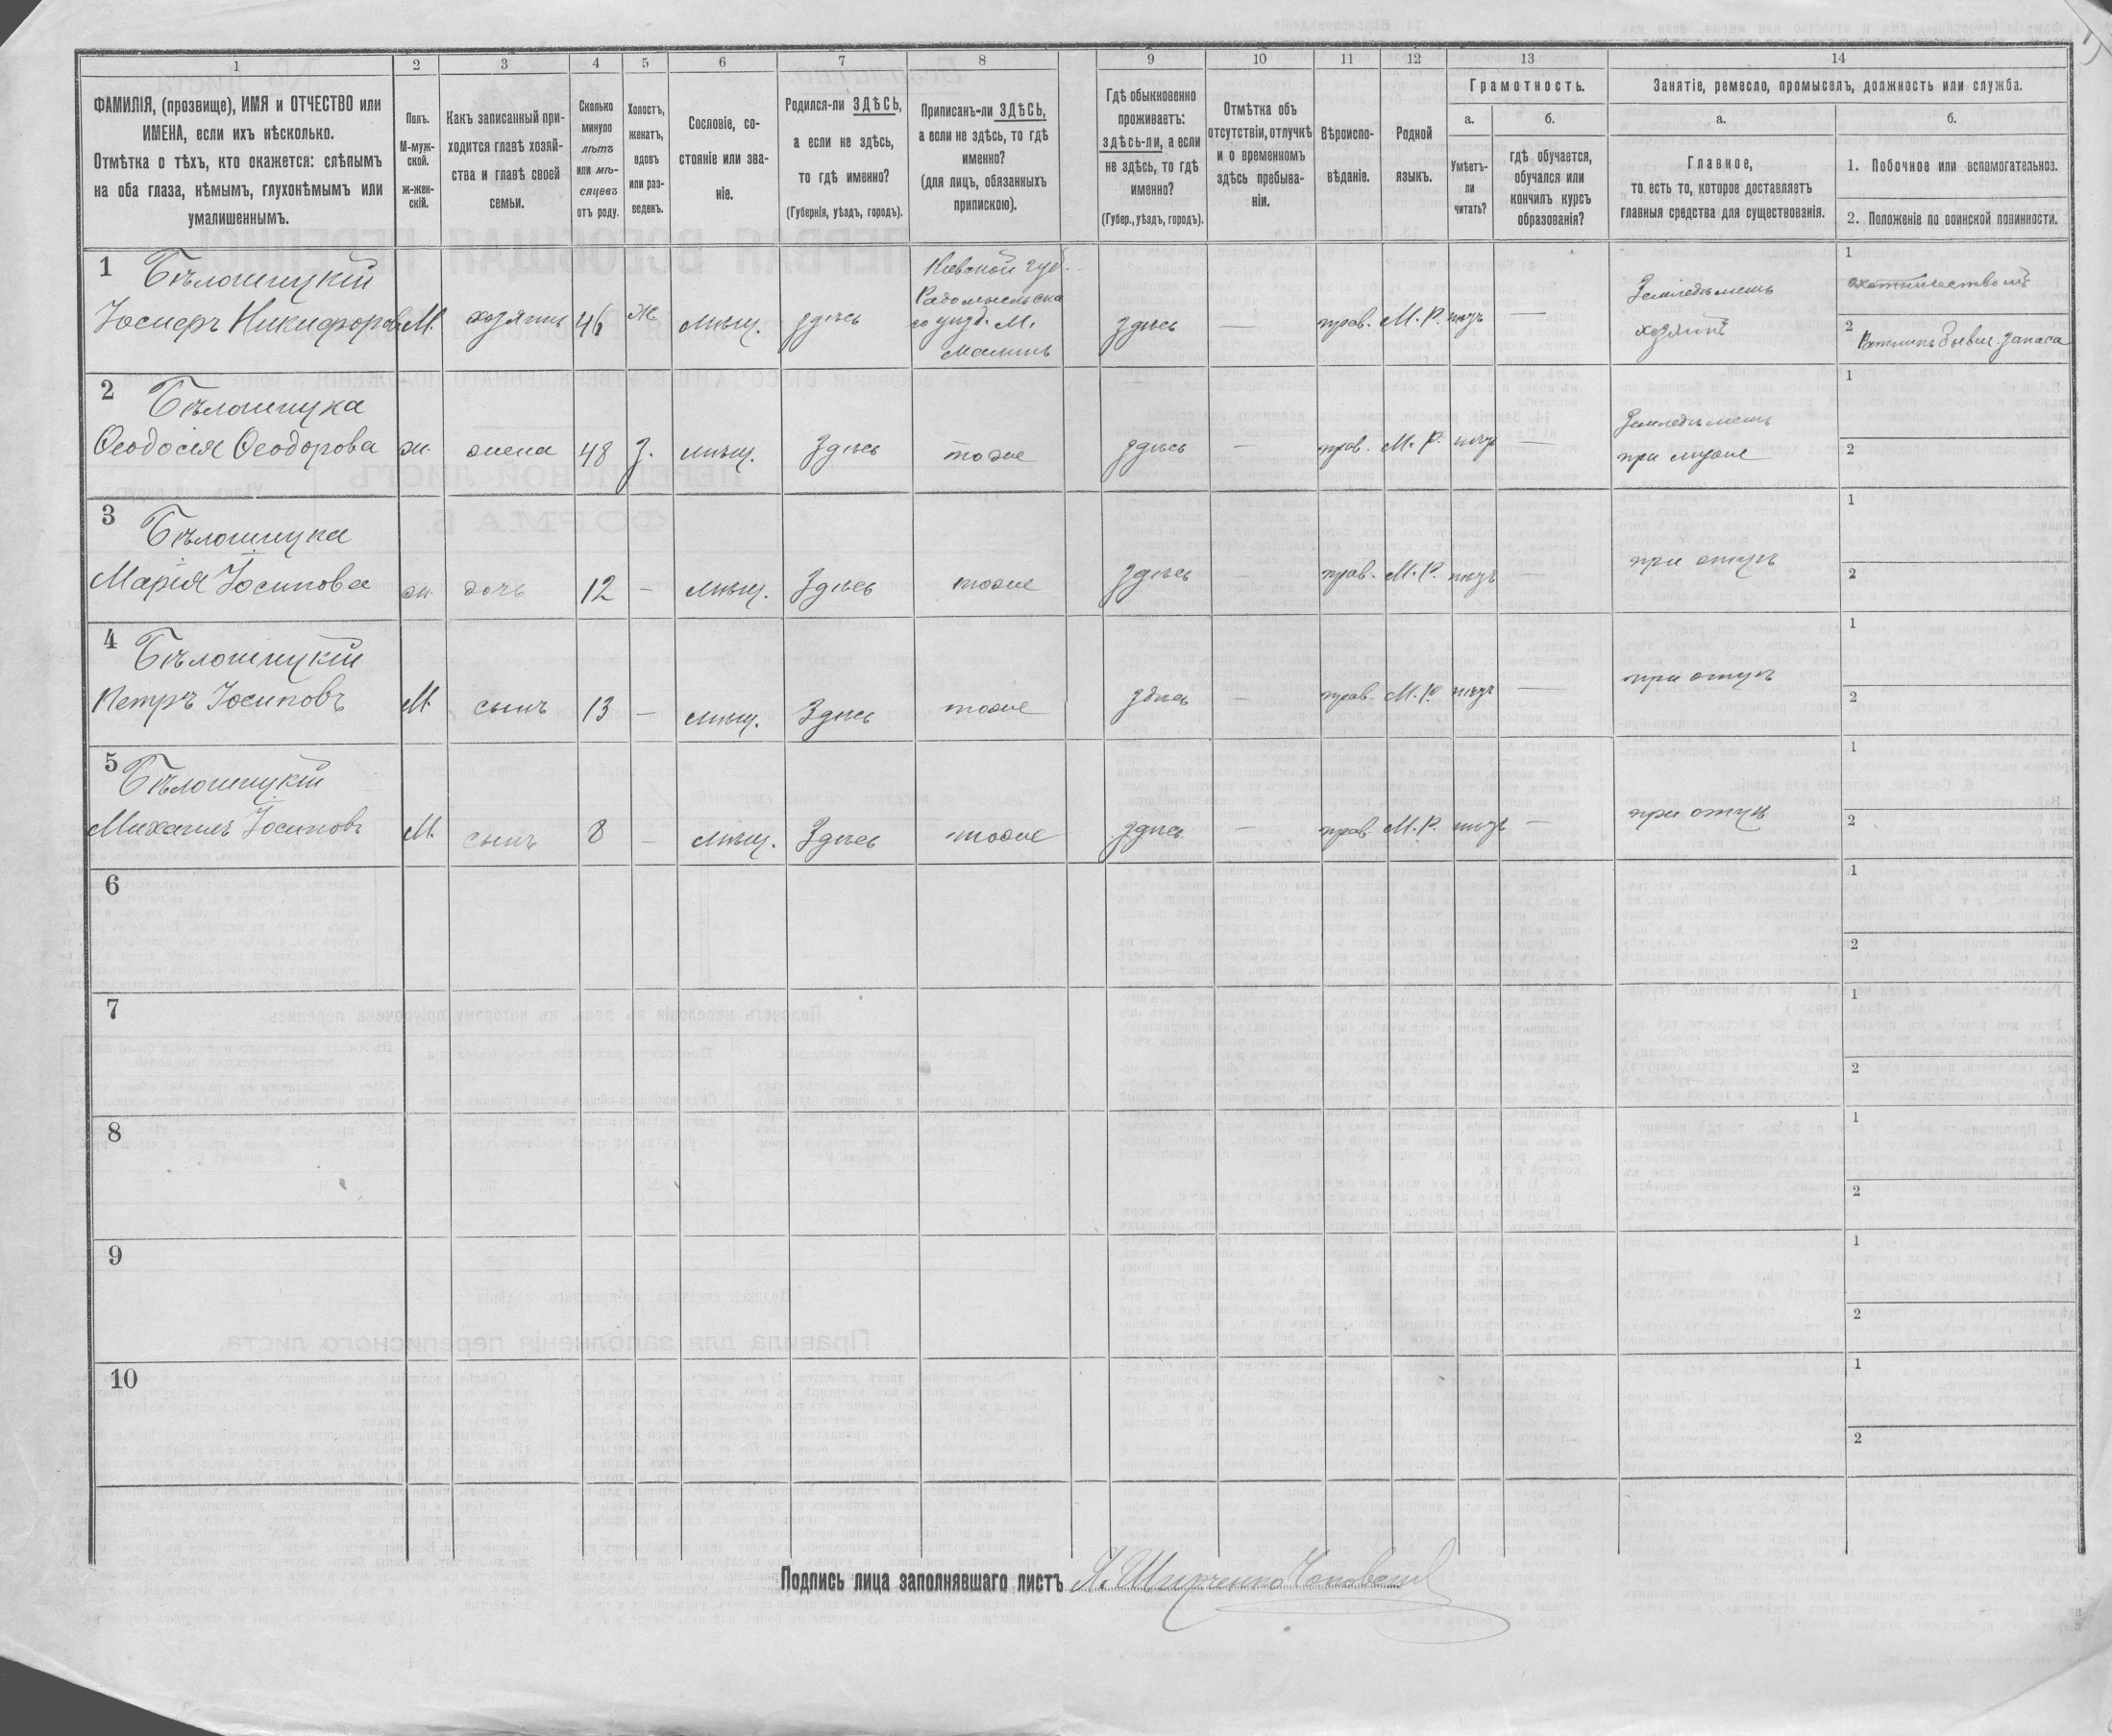 1 2 3 4 5 6 7 8 9 10 11 12 13 14
ФАМИЛІЯ, (прозвище), ИМЯ и ОТЧЕСТВО или
ИМЕНА, если ихъ нѣсколько.
Отмѣтка о тѣхъ, кто окажется: слѣпымъ
на оба глаза, нѣмымъ, глухонѣмымъ или
умалишеннымъ.
Полъ.
М-муж-
ской.
ж-жен-
скій.
Какъ записанный при-
ходится главѣ хозяй-
ства и главѣ своей
семьи.
Сколько
минуло
лѣтъ
или мѣ-
сяцевъ
отъ роду.
Холостъ,
женатъ,
вдовъ
или раз-
веденъ.
Сословіе, со-
стояніе или зва-
ніе.
Родился-ли ЗДѢСЬ,
а если не здѣсь,
то гдѣ именно?
(Губернія, уѣздъ, городъ).
Приписанъ-ли ЗДѢСЬ,
а если не здѣсь, то гдѣ
именно?
(для лицъ, обязанныхъ
припискою).
Гдѣ обыкновенно
проживаетъ:
здѣсь-ли, а если
не здѣсь, то гдѣ
именно?
(Губер., уѣздъ, городъ).
Отмѣтка объ
отсутствіи, отлучкѣ
и о временномъ
здѣсь пребыва-
ніи.
Вѣроиспо-
вѣданіе.
Родной
языкъ.
Грамотность.
а.
Умѣетъ-
ли
читать?
б.
гдѣ обучается,
обучался или
кончилъ курсъ
образованія?
Занятіе, ремесло, промыселъ, должность или служба.
а.
Главное,
то есть то, которое доставляетъ
главныя средства для существованія.
б.
1. Побочное или вспомогательное.
2. Положеніе по воинской повинности.
1 Бѣлошицкій
Іосифъ Никифоровъ М. хозяинъ 46 ж. мѣщ. здѣсь
Кіевской губ.
Радомысльска
го уѣзд. М.
Малинъ
здѣсь — прав. М. Р. нѣтъ —
Земледѣлецъ
хозяинъ
1
2
2 Бѣлошицка
Ѳеодосія Ѳеодорова ж. жена 48 з. мѣщ. Здѣсь тоже здѣсь — прав. М. Р. нѣтъ —
Земледѣлецъ
при мужѣ
1
2
3 Бѣлошицка
Марія Іосипова ж. дочь 12 — мѣщ. Здѣсь тоже здѣсь — прав. М. Р. нѣтъ — при отцѣ
1
2
4 Бѣлошицкій
Петръ Іосиповъ М. сынъ 13 — мѣщ. Здѣсь тоже здѣсь — прав. М. Р. нѣтъ — при отцѣ
1
2
5 Бѣлошицкій
Михаилъ Іосиповъ М. сынъ 8 — мѣщ. Здѣсь тоже здѣсь — прав. М. Р. нѣтъ — при отцѣ
1
2
6
1
2
7
1
2
8
1
2
9
1
2
10
1
2
Подпись лица заполнявшаго листъ